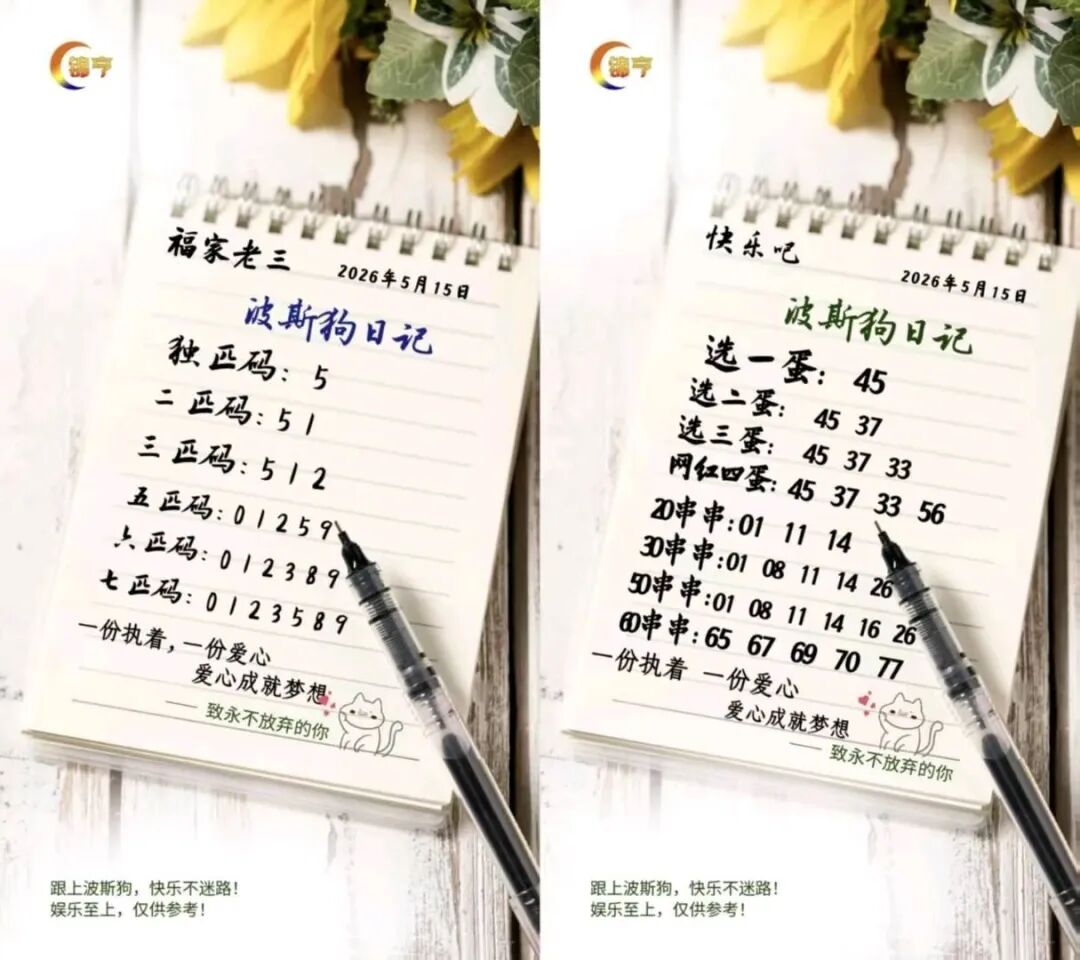 锦亨
福家老三
2026年5月15日
波斯狗日记
独匹码: 5
二匹码: 5 1
三匹码: 5 1 2
五匹码: 0 1 2 5 9
六匹码: 0 1 2 3 8 9
七匹码: 0 1 2 3 5 8 9
一份执着,一份爱心
爱心成就梦想
—— 致永不放弃的你
跟上波斯狗,快乐不迷路!
娱乐至上,仅供参考!
锦亨
快乐吧
2026年5月15日
波斯狗日记
选一蛋: 45
选二蛋: 45 37
选三蛋: 45 37 33
网红四蛋: 45 37 33 56
20串串: 01 11 14
30串串: 01 08 11 14 26
50串串: 01 08 11 14 16 26
60串串: 65 67 69 70 77
一份执着 一份爱心
爱心成就梦想
—— 致永不放弃的你
跟上波斯狗,快乐不迷路!
娱乐至上,仅供参考!